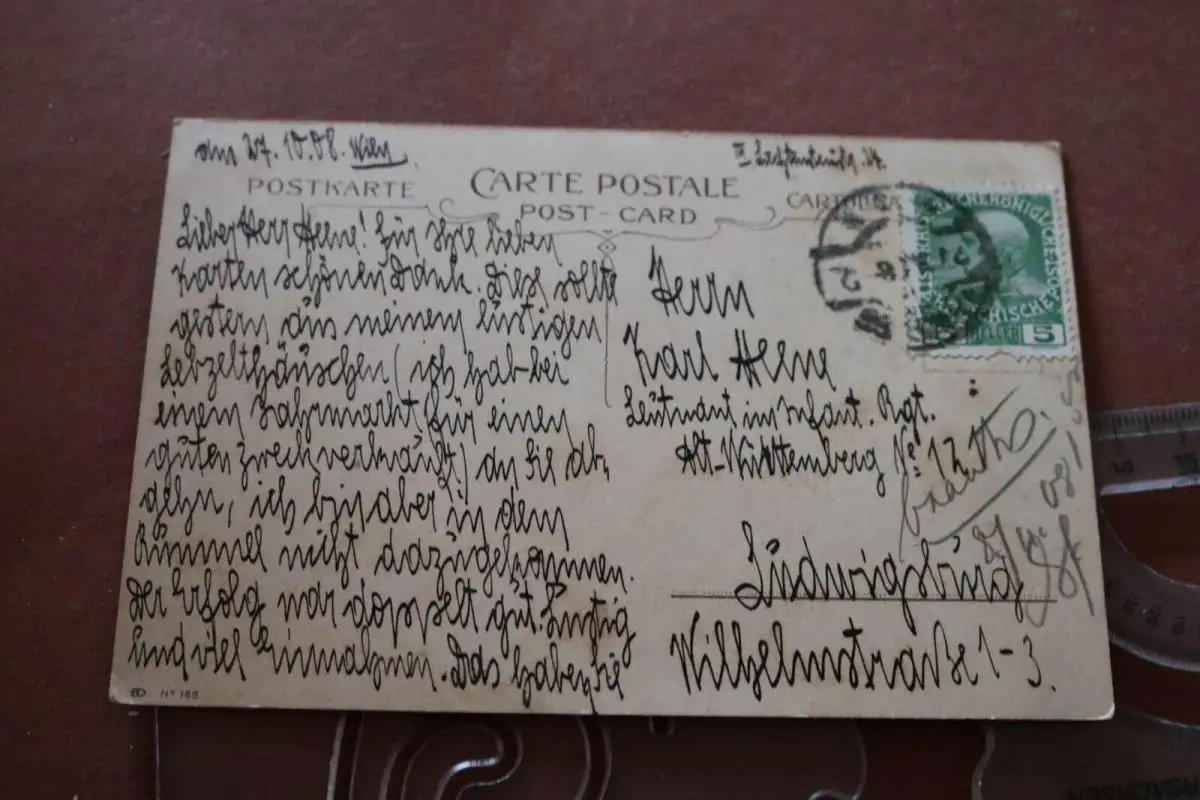 am 27.10.08. Wien
POSTKARTE
CARTE POSTALE
POST-CARD
CARTOLINA
Lieber Herr Heene! Für Ihre lieben
Karten schönen Dank. Diese sollte
gestern aus meinem lustigen
Lebzelthäuschen (ich hab bei
einem Jahrmarkt für einen
guten Zweck verkauft) an Sie ab-
gehn, ich bin aber in dem
Rummel nicht dazugekommen.
Der Erfolg war doppelt gut. Lustig
und viel Einnahmen. Das haben Sie
Herrn
Karl Heene
Leutnant im Infant. Rgt.
Alt-Württemberg No. 12
Ludwigsburg
Wilhelmstraße 1-3.
5
08
BD No 168